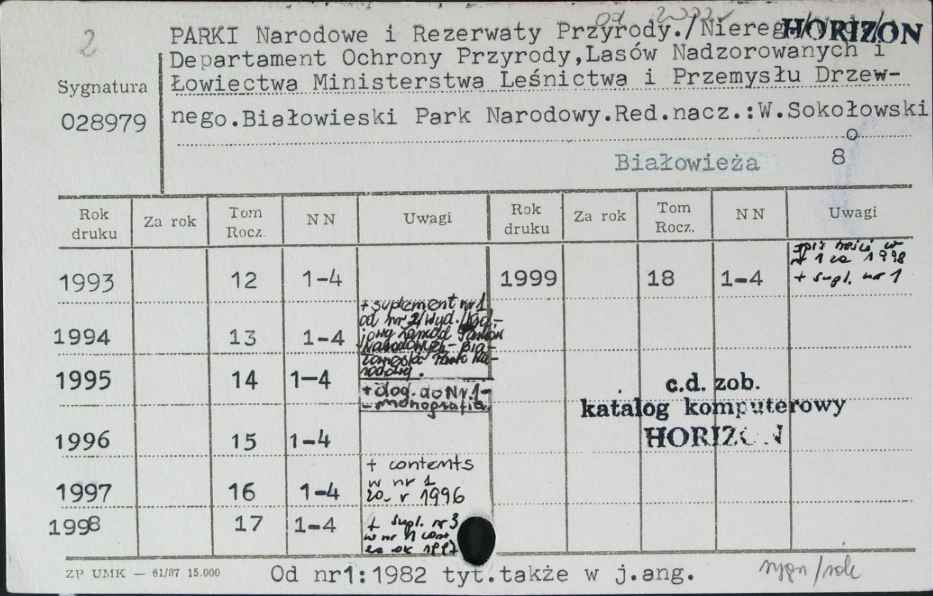 2
od 2000r
PARKI Narodowe i Rezerwaty Przyrody./Niereg HORIZON
Departament Ochrony Przyrody,Lasów Nadzorowanych i
Sygnatura
Łowiectwa Ministerstwa Leśnictwa i Przemysłu Drzew-
028979
nego.Białowieski Park Narodowy.Red.nacz.:W.Sokołowski
Białowieża 8o
Rok druku Za rok Tom Rocz. NN Uwagi Rok druku Za rok Tom Rocz. NN Uwagi
1993 12 1-4 1999 18 1-4 spis treści w nr 1 za 1998 + supl. nr 1
1994 13 1-4 + suplement nr 1 od nr 2/wyd.
Narodowych - Bia-
1995 14 1-4
+ dog. do Nr. 1-
- monografia
c.d. zob.
katalog komputerowy
HORIZON
1996 15 1-4
1997 16 1-4 + contents w nr 1 za r 1996
1998 17 1-4 + supl. nr 3 w nr 1 za rok 1997
ZP UMK — 61/87 15.000
Od nr1:1982 tyt.także w j.ang.